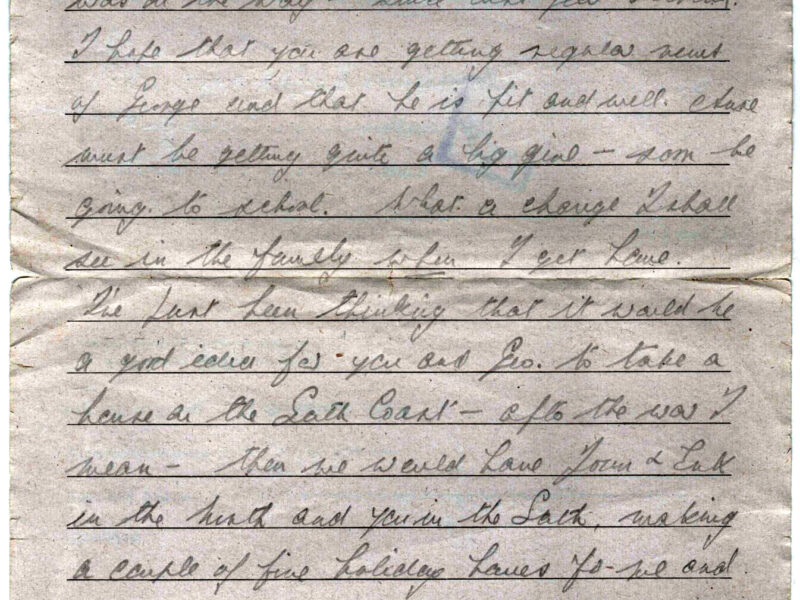 I hope that you are getting regular news
of George and that he is fit and well. Anne
must be getting quite a big girl – soon be
going to school. What a change I shall
see in the family when I get home.
I've just been thinking that it would be
a good idea for you and Geo. to take a
house on the South Coast – after the war I
mean – then we would have Tom &
in the North and you in the South, making
a couple of fine holiday homes for me and